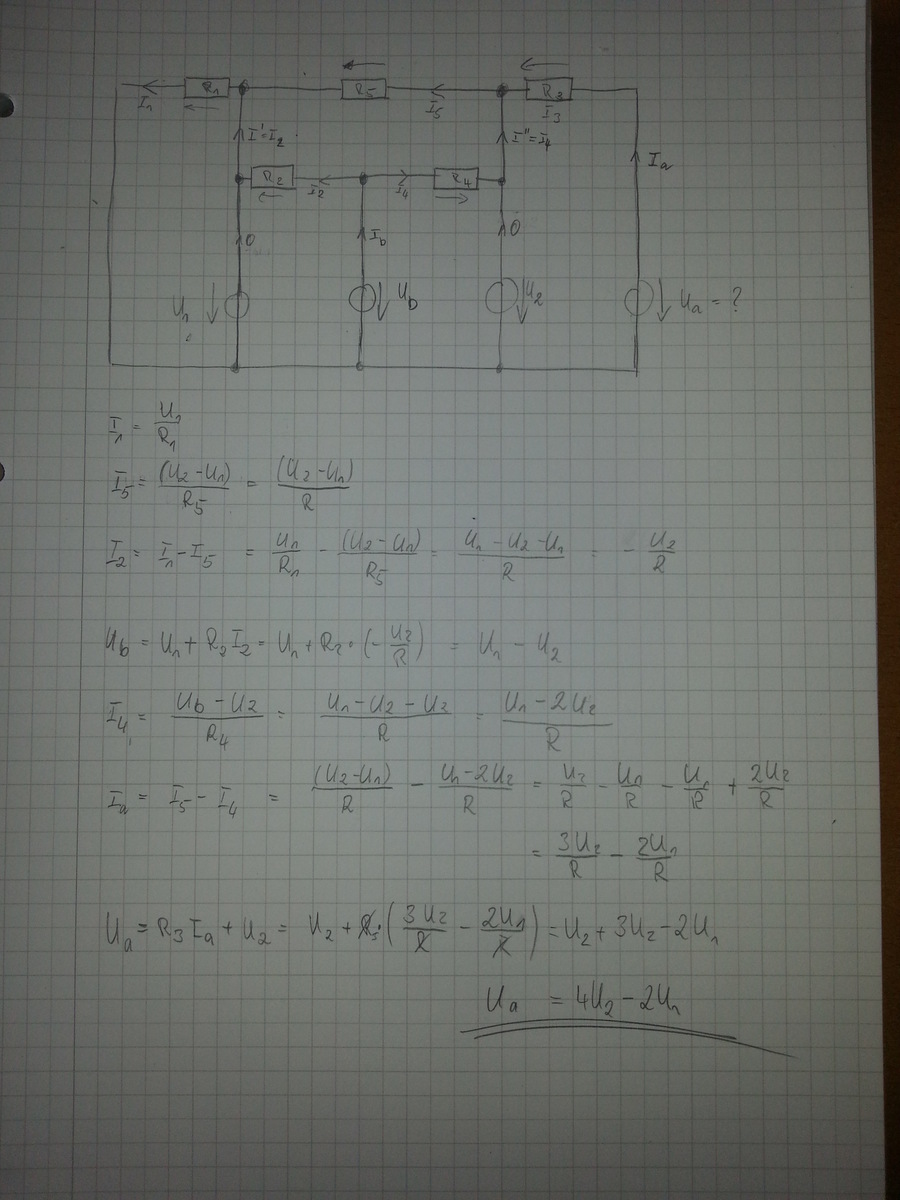 R1 R5 R3
I1 I5 I3
I'=I2 I''=I4 Ia
R2 I2 I4 R4
0 Ib 0
U1 Ub U2 Ua = ?
I1 = U1/R1
I5 = (U2-U1)/R5 = (U2-U1)/R
I2 = I1-I5 = U1/R1 - (U2-U1)/R5 = (U1-U2-U1)/R = - U2/R
Ub = U1 + R2 I2 = U1 + R2 · (-U2/R) = U1 - U2
I4 = (Ub-U2)/R4 = (U1-U2-U2)/R = (U1-2U2)/R
Ia = I5 - I4 = (U2-U1)/R - (U1-2U2)/R = U2/R - U1/R - U1/R + 2U2/R
= 3U2/R - 2U1/R
Ua = R3 Ia + U2 = U2 + R3·(3U2/R - 2U1/R) = U2 + 3U2 - 2U1
Ua = 4U2 - 2U1